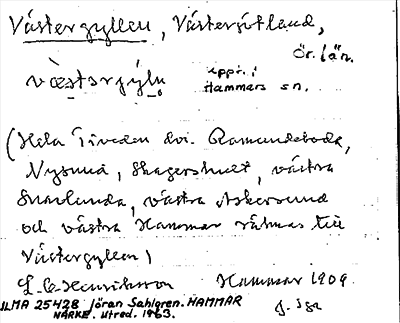 Västergyllen, Västergötland,
Ör. län.
væstərjylṇ uppt. i
Hammars sn.
(Hela Tiveden dvs. Ramundeboda,
Nysund, Skagershult, västra
Snavlunda, västra Askersund
och västra Hammar räknas till
Västergyllen)
L. G. Henrikson Hammar 1909.
ILMA 25428 Jöran Sahlgren. HAMMAR
NÄRKE. Utred. 1963.